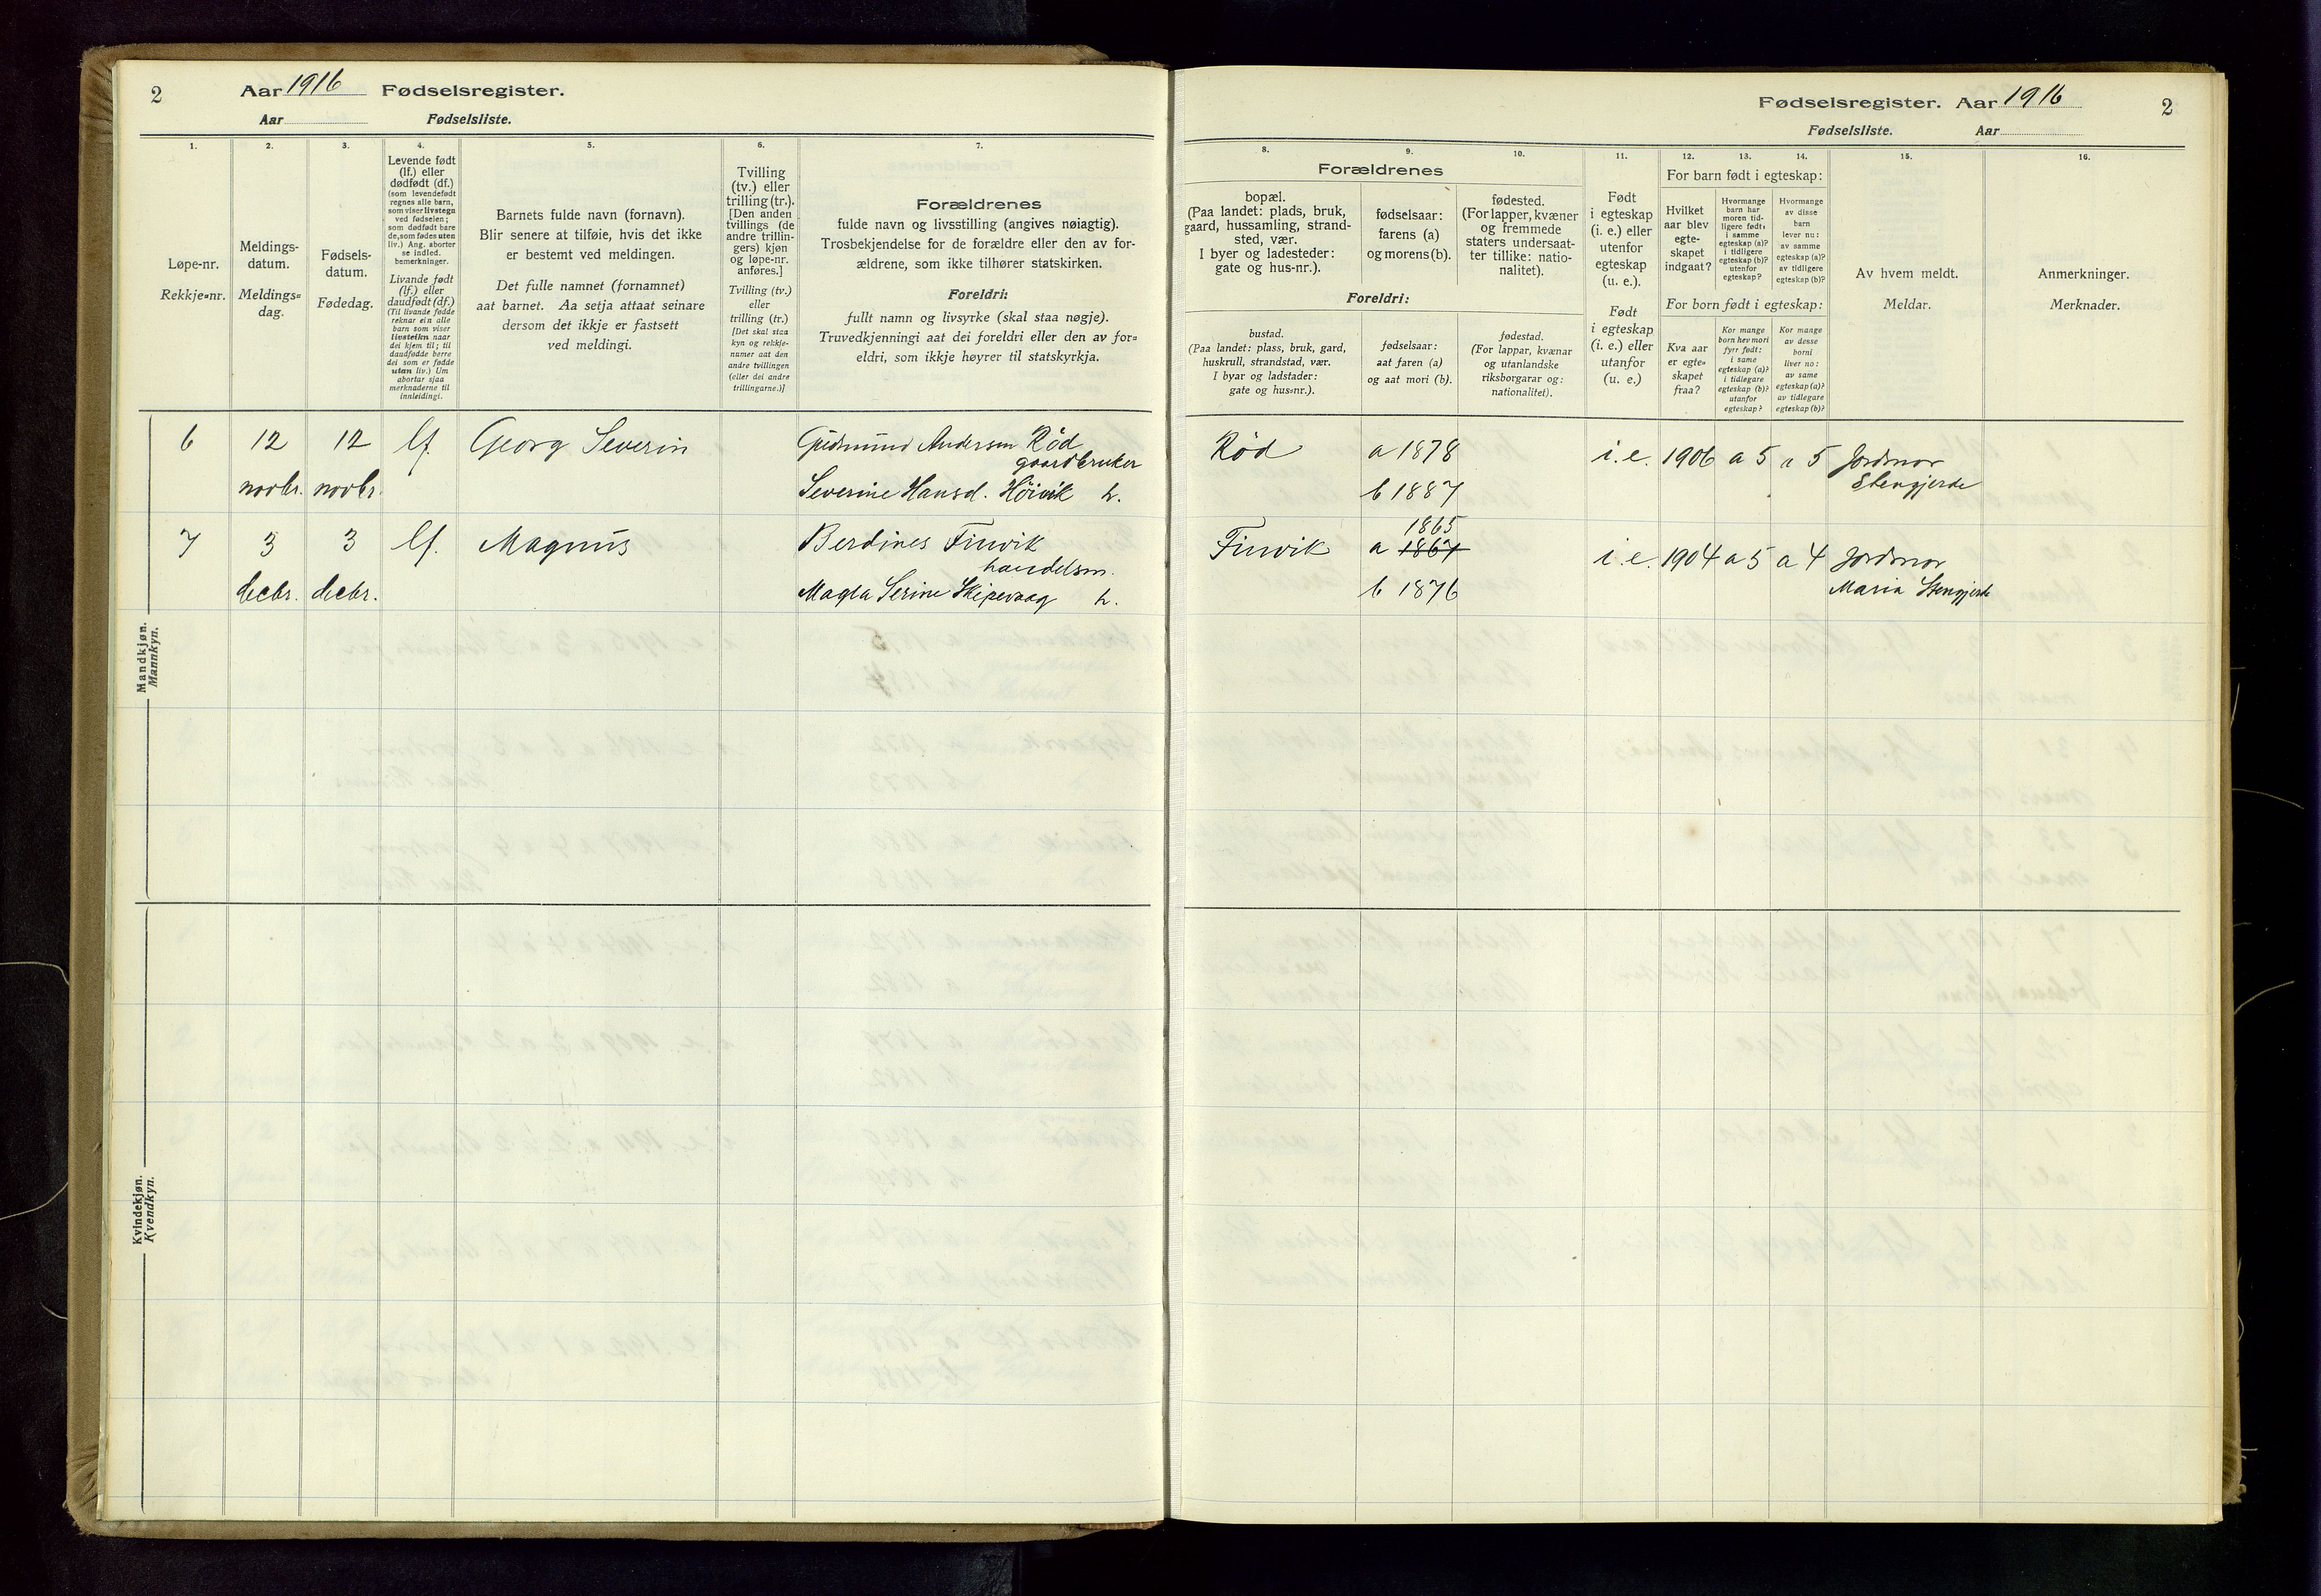 2 Aar 1916 Fødselsregister.
Aar Fødselsliste.
1. 2. 3. 4. 5. 6. 7.
Løpe-nr.
Rekkje=nr.
Meldings-
datum.
Meldings=
dag.
Fødsels-
datum.
Fødedag.
Levende født
(lf.) eller
dødfødt (df.)
(som levendefødt
regnes alle barn,
som viser livstegn
ved fødselen;
som dødfødt bare
de, som fødes uten
liv.) Ang. aborter
se indled.
bemerkninger.
Livande født
(lf.) eller
daudfødt (df.)
(Til livande fødde
reknar ein alle
barn som viser
livsteikn naar
dei kjem til; til
daudfødde berre
dei som er fødde
utan liv.) Um
abortar sjaa
merknaderne til
innleidingi.
Barnets fulde navn (fornavn).
Blir senere at tilføie, hvis det ikke
er bestemt ved meldingen.
Det fulle namnet (fornamnet)
aat barnet. Aa setja attaat seinare
dersom det ikkje er fastsett
ved meldingi.
Tvilling
(tv.) eller
trilling (tr.).
[Den anden
tvillings (de
andre trillin-
gers) kjøn
og løpe-nr.
anføres.]
Tvilling (tv.)
eller
trilling (tr.)
[Det skal staa
kyn og rekkje-
numer aat den
andre tvillingen
(eller dei andre
trillingarne.)]
Forældrenes
fulde navn og livsstilling (angives nøiagtig).
Trosbekjendelse for de forældre eller den av for-
ældrene, som ikke tilhører statskirken.
Foreldri:
fullt namn og livsyrke (skal staa nøgje).
Truvedkjenningi aat dei foreldri eller den av for=
eldri, som ikkje høyrer til statskyrkja.
6 12 12 lf. Georg Severin Gudmund Andersen Rød
gaardbruker
novbr. novbr. Severine Hansd. Höivik h.
7 3 3 lf. Magnus Berdines Finvik
handelsm.
decbr. decbr. Magla Serine Skipevaag h.
Mandkjøn.
Mannkyn.
Kvindekjøn.
Kvendkyn.
Fødselsregister. Aar 1916 2
Fødselsliste. Aar
8. 9. 10. 11. 12. 13. 14. 15. 16.
Forældrenes
bopæl.
(Paa landet: plads, bruk,
gaard, hussamling, strand-
sted, vær.
I byer og ladesteder:
gate og hus-nr.).
fødselsaar:
farens (a)
og morens (b).
fødested.
(For lapper, kvæner
og fremmede
staters undersaat-
ter tillike: natio-
nalitet).
Foreldri:
bustad.
(Paa landet: plass, bruk, gard,
huskrull, strandstad, vær.
I byar og ladstader:
gate og hus=nr.).
fødselsaar:
aat faren (a)
og aat mori (b).
fødestad.
(For lappar, kvænar
og utanlandske
riksborgarar og:
nationalitet).
Født
i egteskap
(i. e.) eller
utenfor
egteskap
(u. e.).
Født
i egteskap
(i. e.) eller
utanfor
(u. e.)
For barn født i egteskap:
Hvilket
aar blev
egte-
skapet
indgaat?
Hvormange
barn har
moren tid-
ligere født:
i samme
egteskap (a)?
i tidligere
egteskap (b)?
utenfor
egteskap?
Hvormange
av disse
barn
lever nu:
av samme
egteskap (a)?
av tidligere
egteskap (b)?
For born født i egteskap:
Kva aar
er egte=
skapet
fraa?
Kor mange
born hev mori
fyrr født:
i same
egteskap (a)?
i tidlegare
egteskap (b)?
utanfor
egteskap?
Kor mange
av desse
borni
liver no:
av same
egteskap (a)?
av tidlegare
egteskap (b)?
Av hvem meldt.
Meldar.
Anmerkninger.
Merknader.
Rød a 1878 i.e. 1906 a 5 a 5 Jordmor
b 1887 Stengjerde
1865
Finvik a 1867 i.e. 1904 a 5 a 4 Jordmor
b 1876 Maria Stengjerde